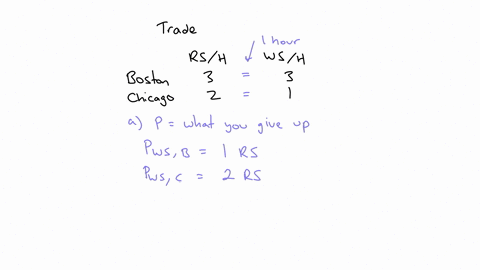 Trade
1 hour
RS/H WS/H
Boston 3 = 3
Chicago 2 = 1
a) P = what you give up
PWS,B = 1 RS
PWS,C = 2 RS